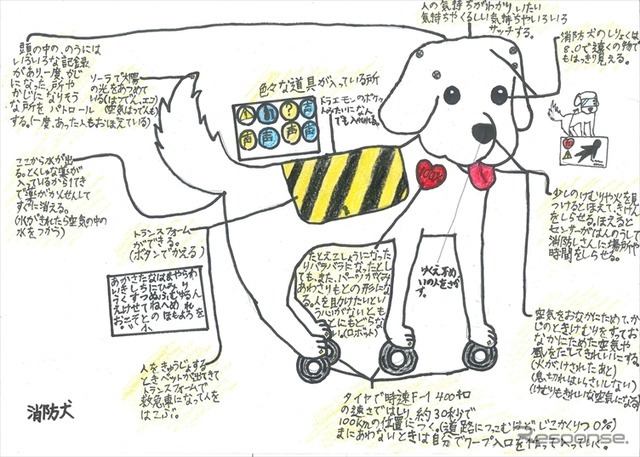 人の気持ちがわかり、いたい
気持ちやくるしい気持ちやいろいろ
サッチする。
消防犬のしりょくは
8.0で遠くの物で
もはっきり見える。
頭の中の、のうには
いろいろな記録
があり一度、かじ
になった所や
かじになりそう
な所をパトロール
する。(一度、あった人もおぼえている)
ソーラーで太陽
の光をあつめて
いる
色々な道具が入っている所
ドラエモンのポケッ
トみたいになん
でも入れれる。
声
声
声
声
ここから水が出
る。とくしゅな薬が
入っているから1てき
で薬がかくさんして
すぐに消える。
(水がきれたら空気の中の
水をつかう)
少しのけむりや火を見
つけるとほえて、きけん
をしらせる。ほえると
センサーがはんのうして
消防しさんに場所や
時間をしらせる。
トランスフォーム
ができる。
(ボタンでかえる)
たとえこしょうになった
りバラバラになったとし
ても、また、パーツがくみ
あわさりもとの形に
なる。人を助けたいとい
う心がないともと
にもどらな
い(ロボット)
あかさたなはまやらわ
いきしちにひみ り
うくすつぬふむゆるん
えけせてねへめ れ
おこそとのほもよろを
空気をおなかにためて、か
じのときけむりをすってお
なかにためた空気や
風をだしてきれいにする。
(火がけされたあと)
(息ちかれはしらさいしない)
(けむりもきれいな空気になる)
人をきゅうじょする
ときベットが出てきて
トランスフォームで
救急車になって人を
はこぶ。
タイヤで時速F-1 400キロ
の速さではしり、約30秒で
100kmの位置につく。(道路につっこむはず、じこかくりつ0%)
まにあわないときは自分でワープ入口を作って入っていく。
消防犬
Response.